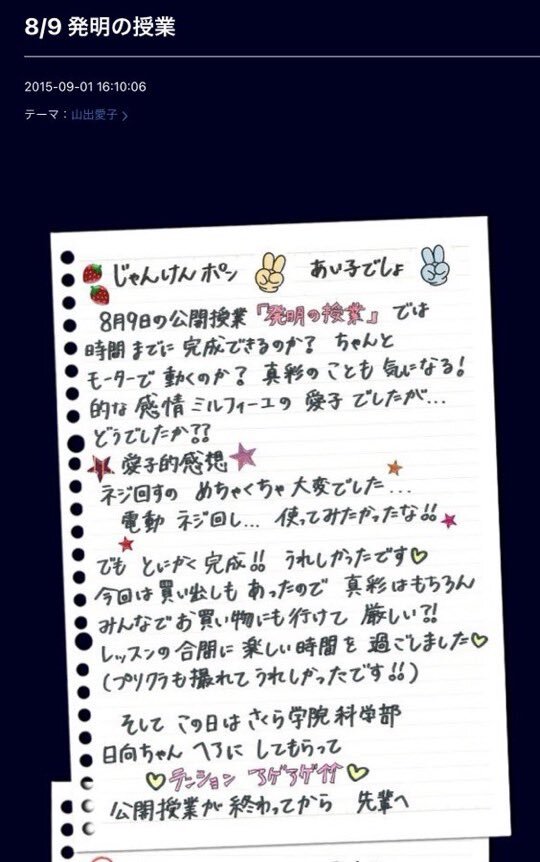 8/9 発明の授業
2015-09-01 16:10:06
テーマ：山出愛子
じゃんけんポン あい子でしょ
8月9日の公開授業「発明の授業」では
時間までに完成できるのか？ ちゃんと
モーターで動くのか？ 真彩のことも気になる！
的な感情ミルフィーユの愛子でしたが…
どうでしたか??
愛子的感想
ネジ回すの めちゃくちゃ大変でした…
電動ネジ回し… 使ってみたかったな!!
でも とにかく完成!! うれしかったです♡
今回は買い出しもあったので 真彩はもちろん
みんなでお買い物にも行けて 厳しい?!
レッスンの合間に楽しい時間を過ごしました♡
(プリクラも撮れてうれしかったです!!)
そして この日は さくら学院科学部
日向ちゃん へろに してもらって
♡テンション アゲアゲ↑↑♡
公開授業が終わってから 先輩へ